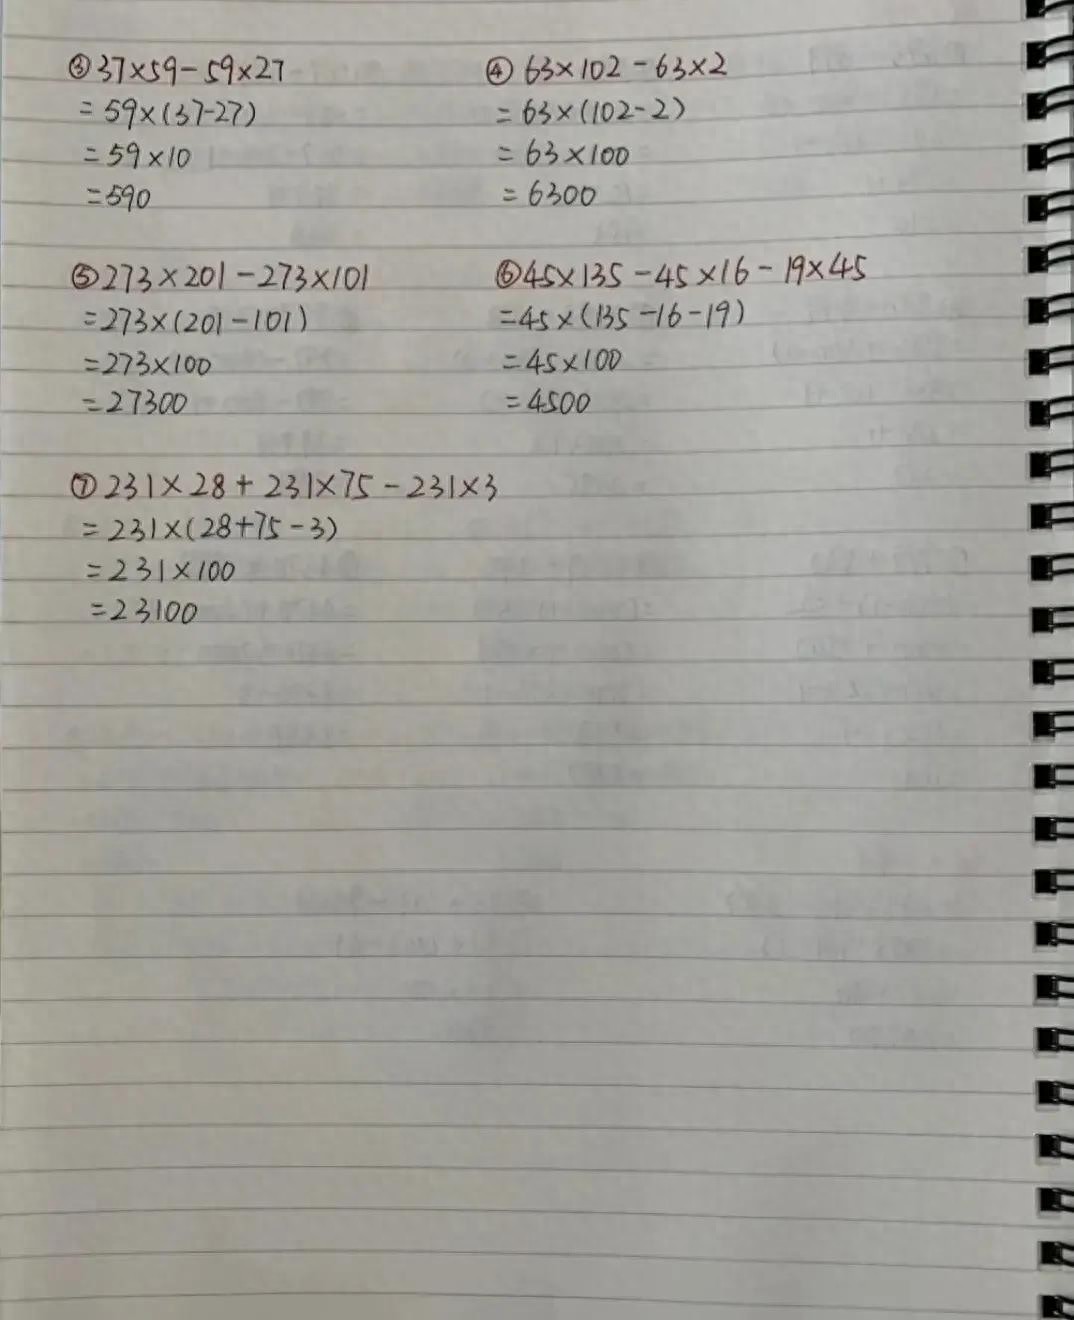 ③37×59-59×27
=59×(37-27)
=59×10
=590
④ 63×102-63×2
=63×(102-2)
=63×100
=6300
⑤273×201-273×101
=273×(201-101)
=273×100
=27300
⑥45×135-45×16-19×45
=45×(135-16-19)
=45×100
=4500
⑦231×28+231×75-231×3
=231×(28+75-3)
=231×100
=23100